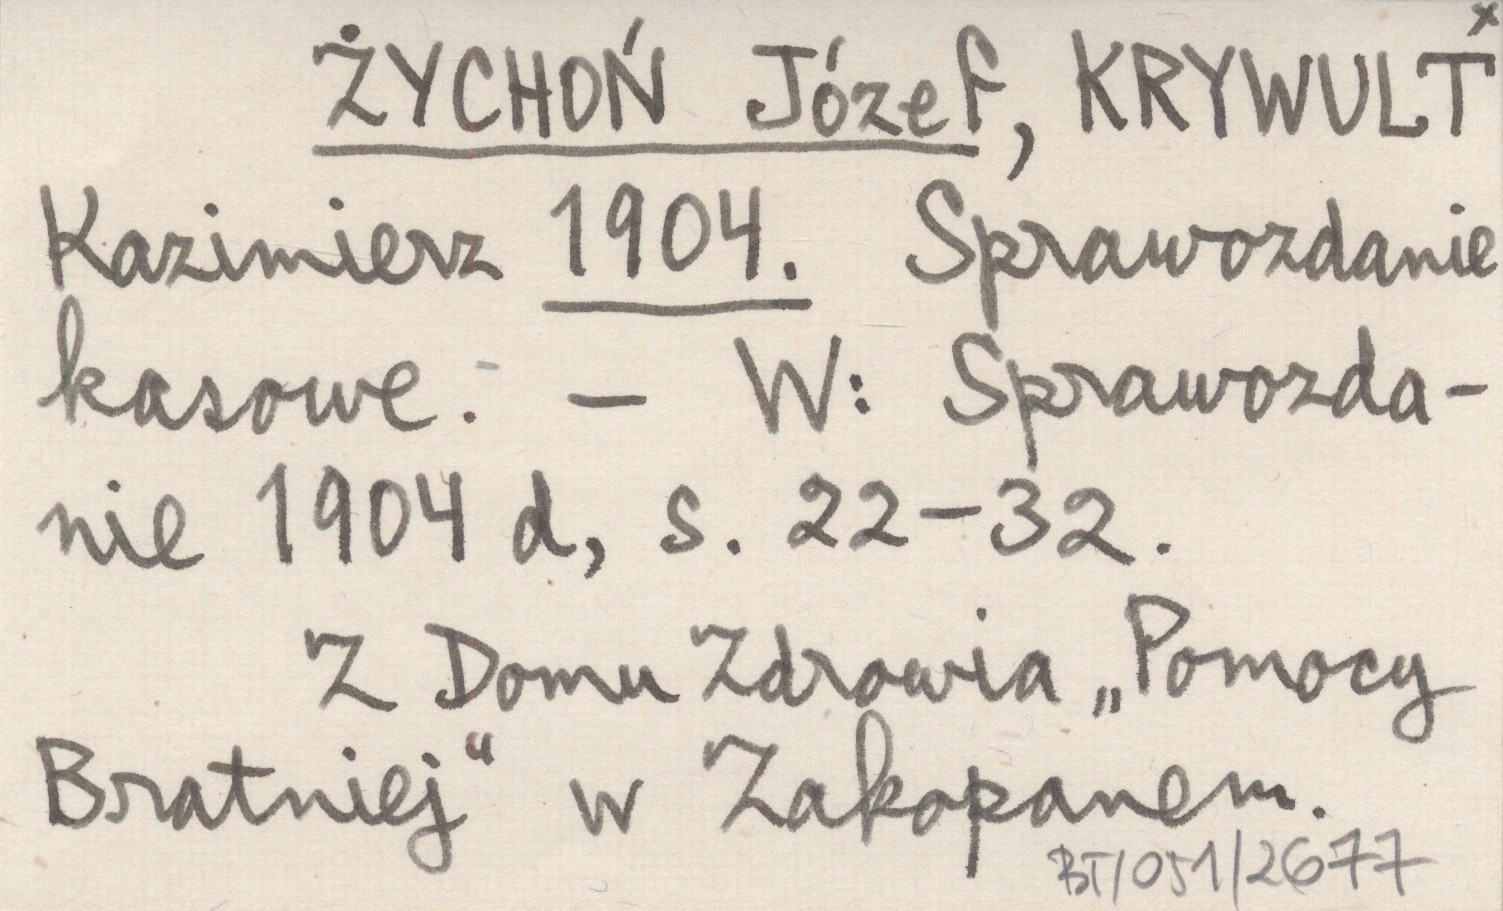 x
ŻYCHOŃ Józef, KRYWULT
Kazimierz 1904. Sprawozdanie
kasowe. – W: Sprawozda-
nie 1904 d, s. 22–32.
Z Domu Zdrowia „Pomocy
Bratniej“ w Zakopanem.
BT/051/2677